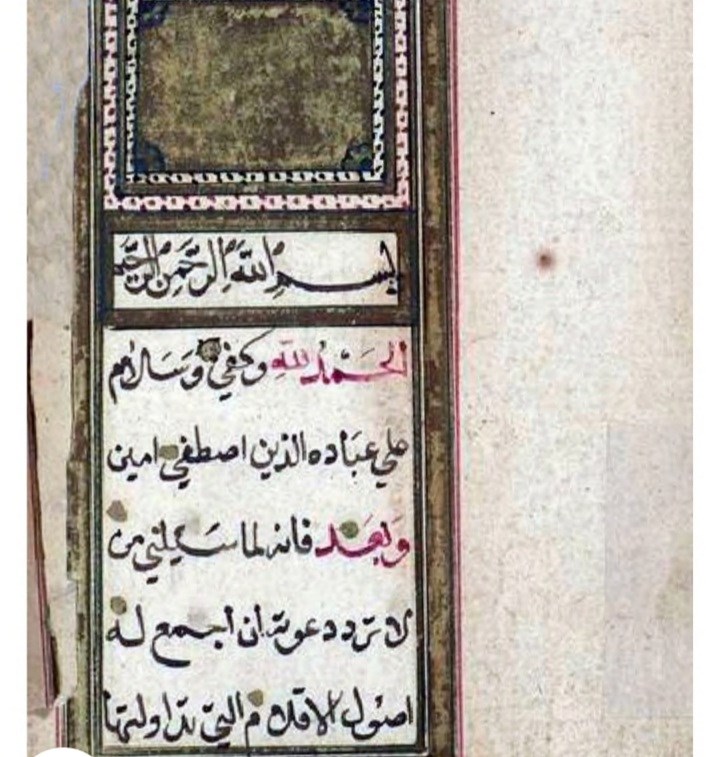 بِسْمِ اللّٰهِ الرَّحْمٰنِ الرَّحِيْمِ
الحَمْدُ لله وكفي وَسَلام
علي عبَاده الذين اصطفي امين
وَبَعَد فانه لما سَيلني من
لا ترد دعوته ان اجمع له
اصول الاقلام التي تداولتها